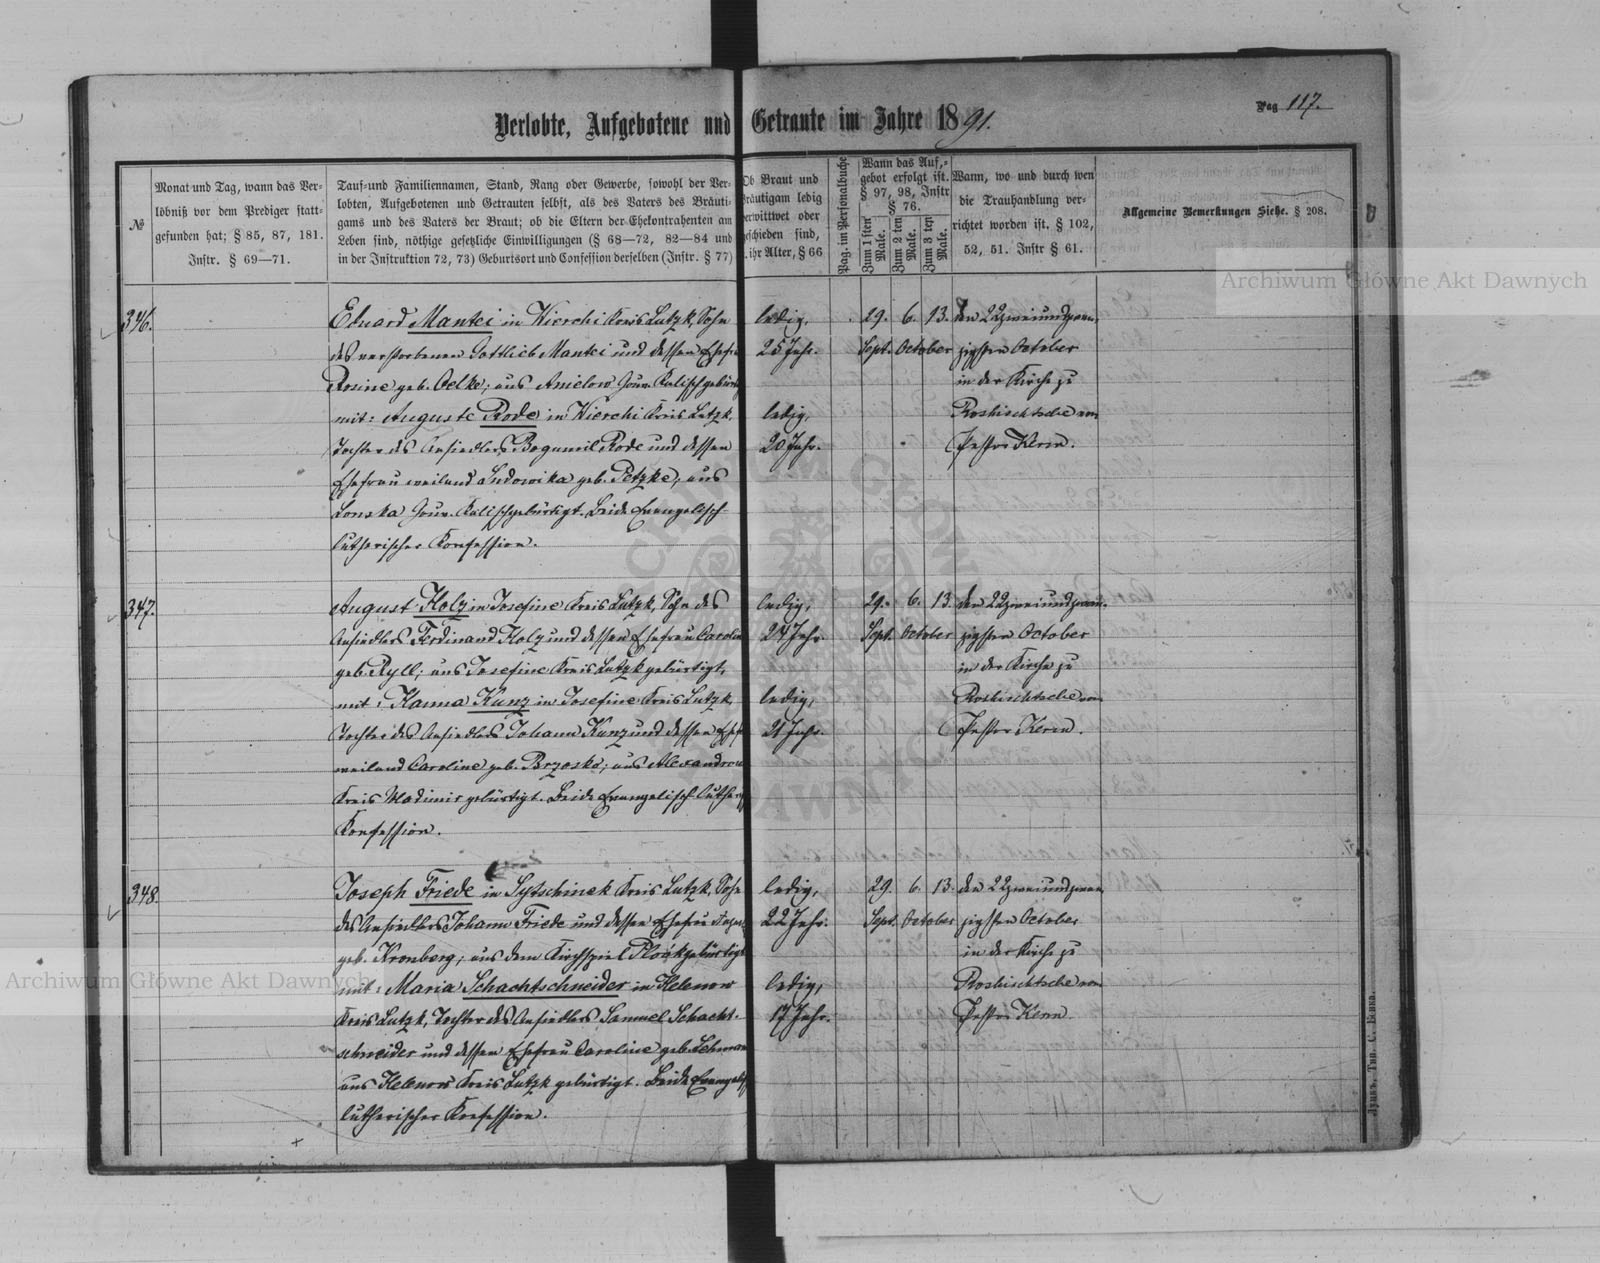 Pag 117.
Verlobte, Aufgebotene und Getraute im Jahre 1891.
№
Monat und Tag, wann das Ver-
löbniß vor dem Prediger statt-
gefunden hat; § 85, 87, 181.
Instr. § 69—71.
Tauf- und Familiennamen, Stand, Rang oder Gewerbe, sowohl der Ver-
lobten, Aufgebotenen und Getrauten selbst, als des Vaters des Bräuti-
gams und des Vaters der Braut; ob die Eltern der Ehekontrahenten am
Leben sind, nöthige gesetzliche Einwilligungen (§ 68—72, 82—84 und
in der Instruktion 72, 73) Geburtsort und Confession derselben (Instr. § 77)
Ob Braut und
Bräutigam ledig
verwittwet oder
geschieden sind,
ihr Alter, § 66
Pag. im Personalbuche
Wann das Auf-
gebot erfolgt ist.
§ 97, 98, Instr
§ 76.
Zum 1sten Male.
Zum 2ten Male.
Zum 3ten Male.
Wann, wo und durch wen
die Trauhandlung ver-
richtet worden ist. § 102,
52, 51. Instr § 61.
Allgemeine Bemerkungen Siehe. § 208.
346.
Eduard Mantei in Wierchi Kreis Lutzk, Sohn
des verstorbenen Gottlieb Mantei und dessen Ehefr
Rosine geb. Oelke; aus Amelow Gouv. Kalisch gebürtig
mit: Auguste Rode in Wierchi Kreis Lutzk,
Tochter des Ansiedlers Bogumil Rode und dessen
Ehefrau weiland Ludowika geb. Petzke, aus
Lonska Gouv. Kalisch gebürtigt. Beide Evangelisch
lutherischer Konfession.
ledig,
25 Jahr.
ledig,
20 Jahr.
29. 6. 13.
Sept. October
den 22 zweiundzwan-
zigsten October
in der Kirche zu
Roshischtsche von
Pastor Kern.
347.
August Holz in Josefine Kreis Lutzk, Sohn des
Ansiedlers Ferdinand Holz und dessen Ehefrau Carolin
geb. Ryll; aus Josefine Kreis Lutzk gebürtigt,
mit: Hanna Kunz in Josefine Kreis Lutzk,
Tochter des Ansiedlers Johann Kunz und dessen Ehefr
weiland Caroline geb. Brzoske; aus Alexandrow
Kreis Wladimir gebürtigt. Beide Evangelisch luther
Konfession.
ledig,
24 Jahr.
ledig,
21 Jahr.
29. 6. 13.
Sept. October
den 22 zweiundzwan-
zigsten October
in der Kirche zu
Roshischtsche von
Pastor Kern.
348.
Joseph Friede in Sytschinek Kreis Lutzk, Sohn
des Ansiedlers Johann Friede und dessen Ehefrau
geb. Kronberg; aus dem Kirchspiel Plozk gebürtigt
mit: Maria Schachtschneider in Helenow
Kreis Lutzk, Tochter des Ansiedlers Samuel Schacht-
schneider und dessen Ehefrau Caroline geb. Lehmann
aus Helenow Kreis Lutzk gebürtigt. Beide Evangelisch
lutherischer Konfession.
ledig,
22 Jahr.
ledig,
17 Jahr.
29. 6. 13.
Sept. October
den 22 zweiundzwan-
zigsten October
in der Kirche zu
Roshischtsche von
Pastor Kern
Archiwum Główne Akt Dawnych
Archiwum Główne Akt Dawnych